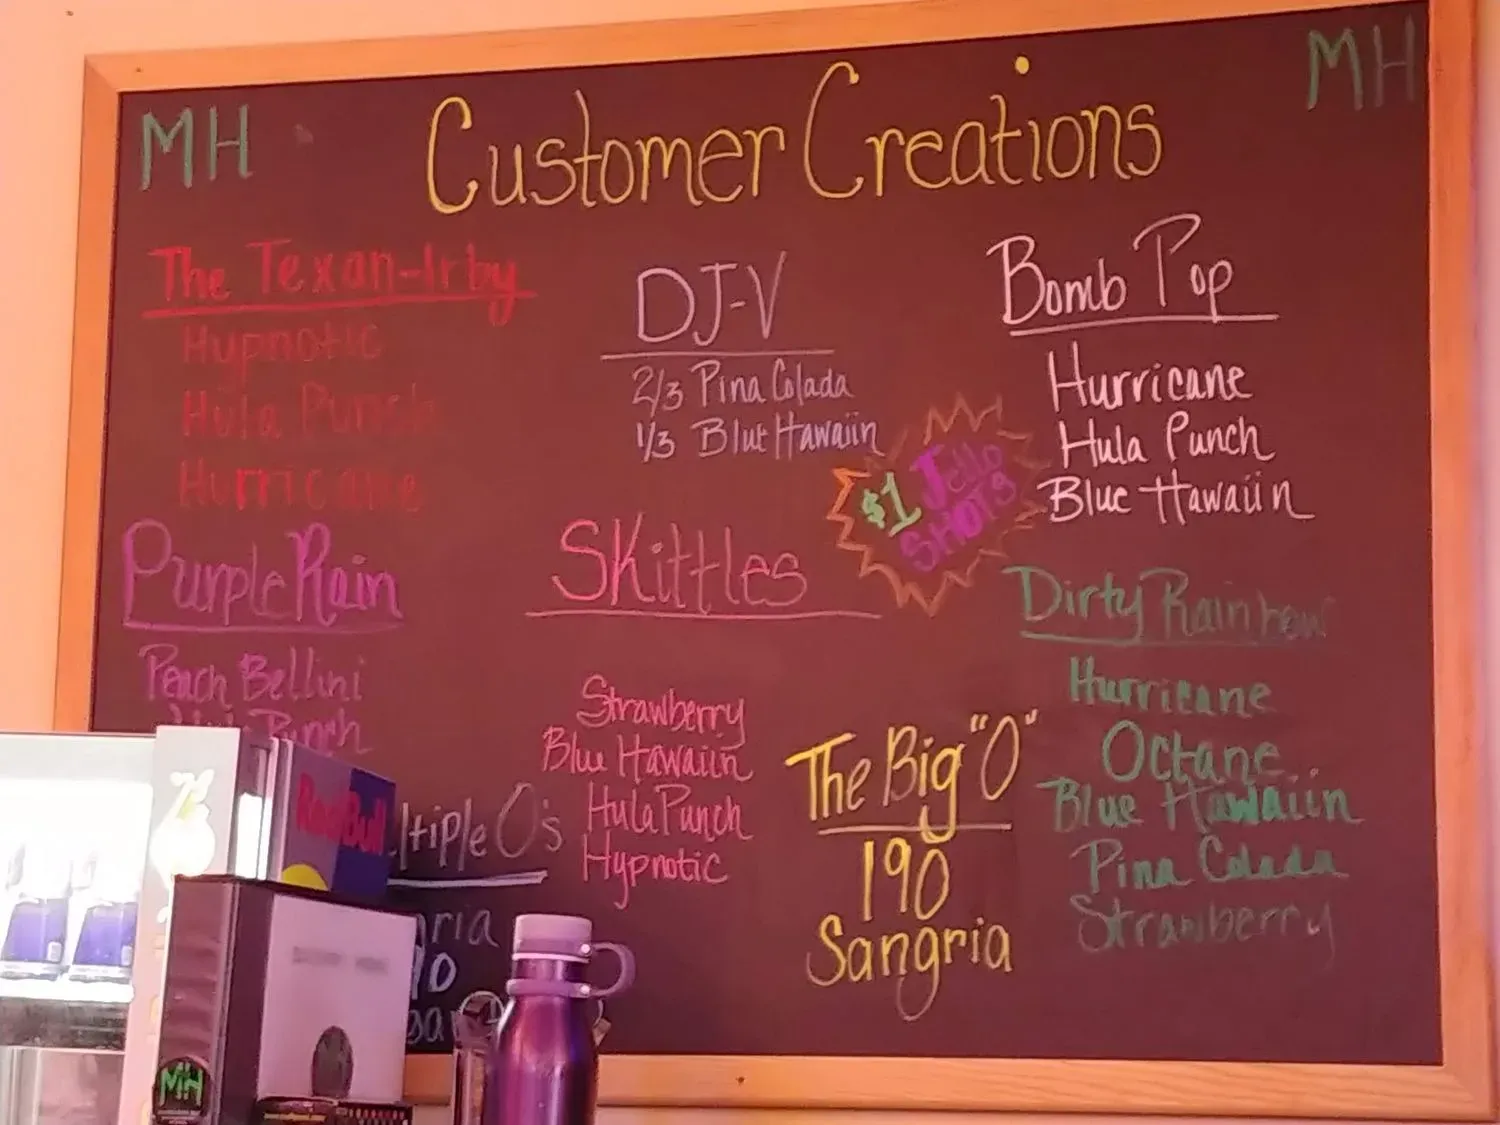 MH
Customer Creations
MH
The Texan-Irby
Hypnotic
Hula Punch
Hurricane
DJ-V
2/3 Pina Colada
1/3 Blue Hawaiin
Bomb Pop
Hurricane
Hula Punch
Blue Hawaiin
$1 Jello
SHOTS
Purple Rain
Peach Bellini
Punch
Skittles
Strawberry
Blue Hawaiin
Hula Punch
Hypnotic
Dirty Rainbow
Hurricane
Octane
Blue Hawaiin
Pina Colada
Strawberry
The Big "O"
190
Sangria
ltiple O's
ria
Red Bull
MH